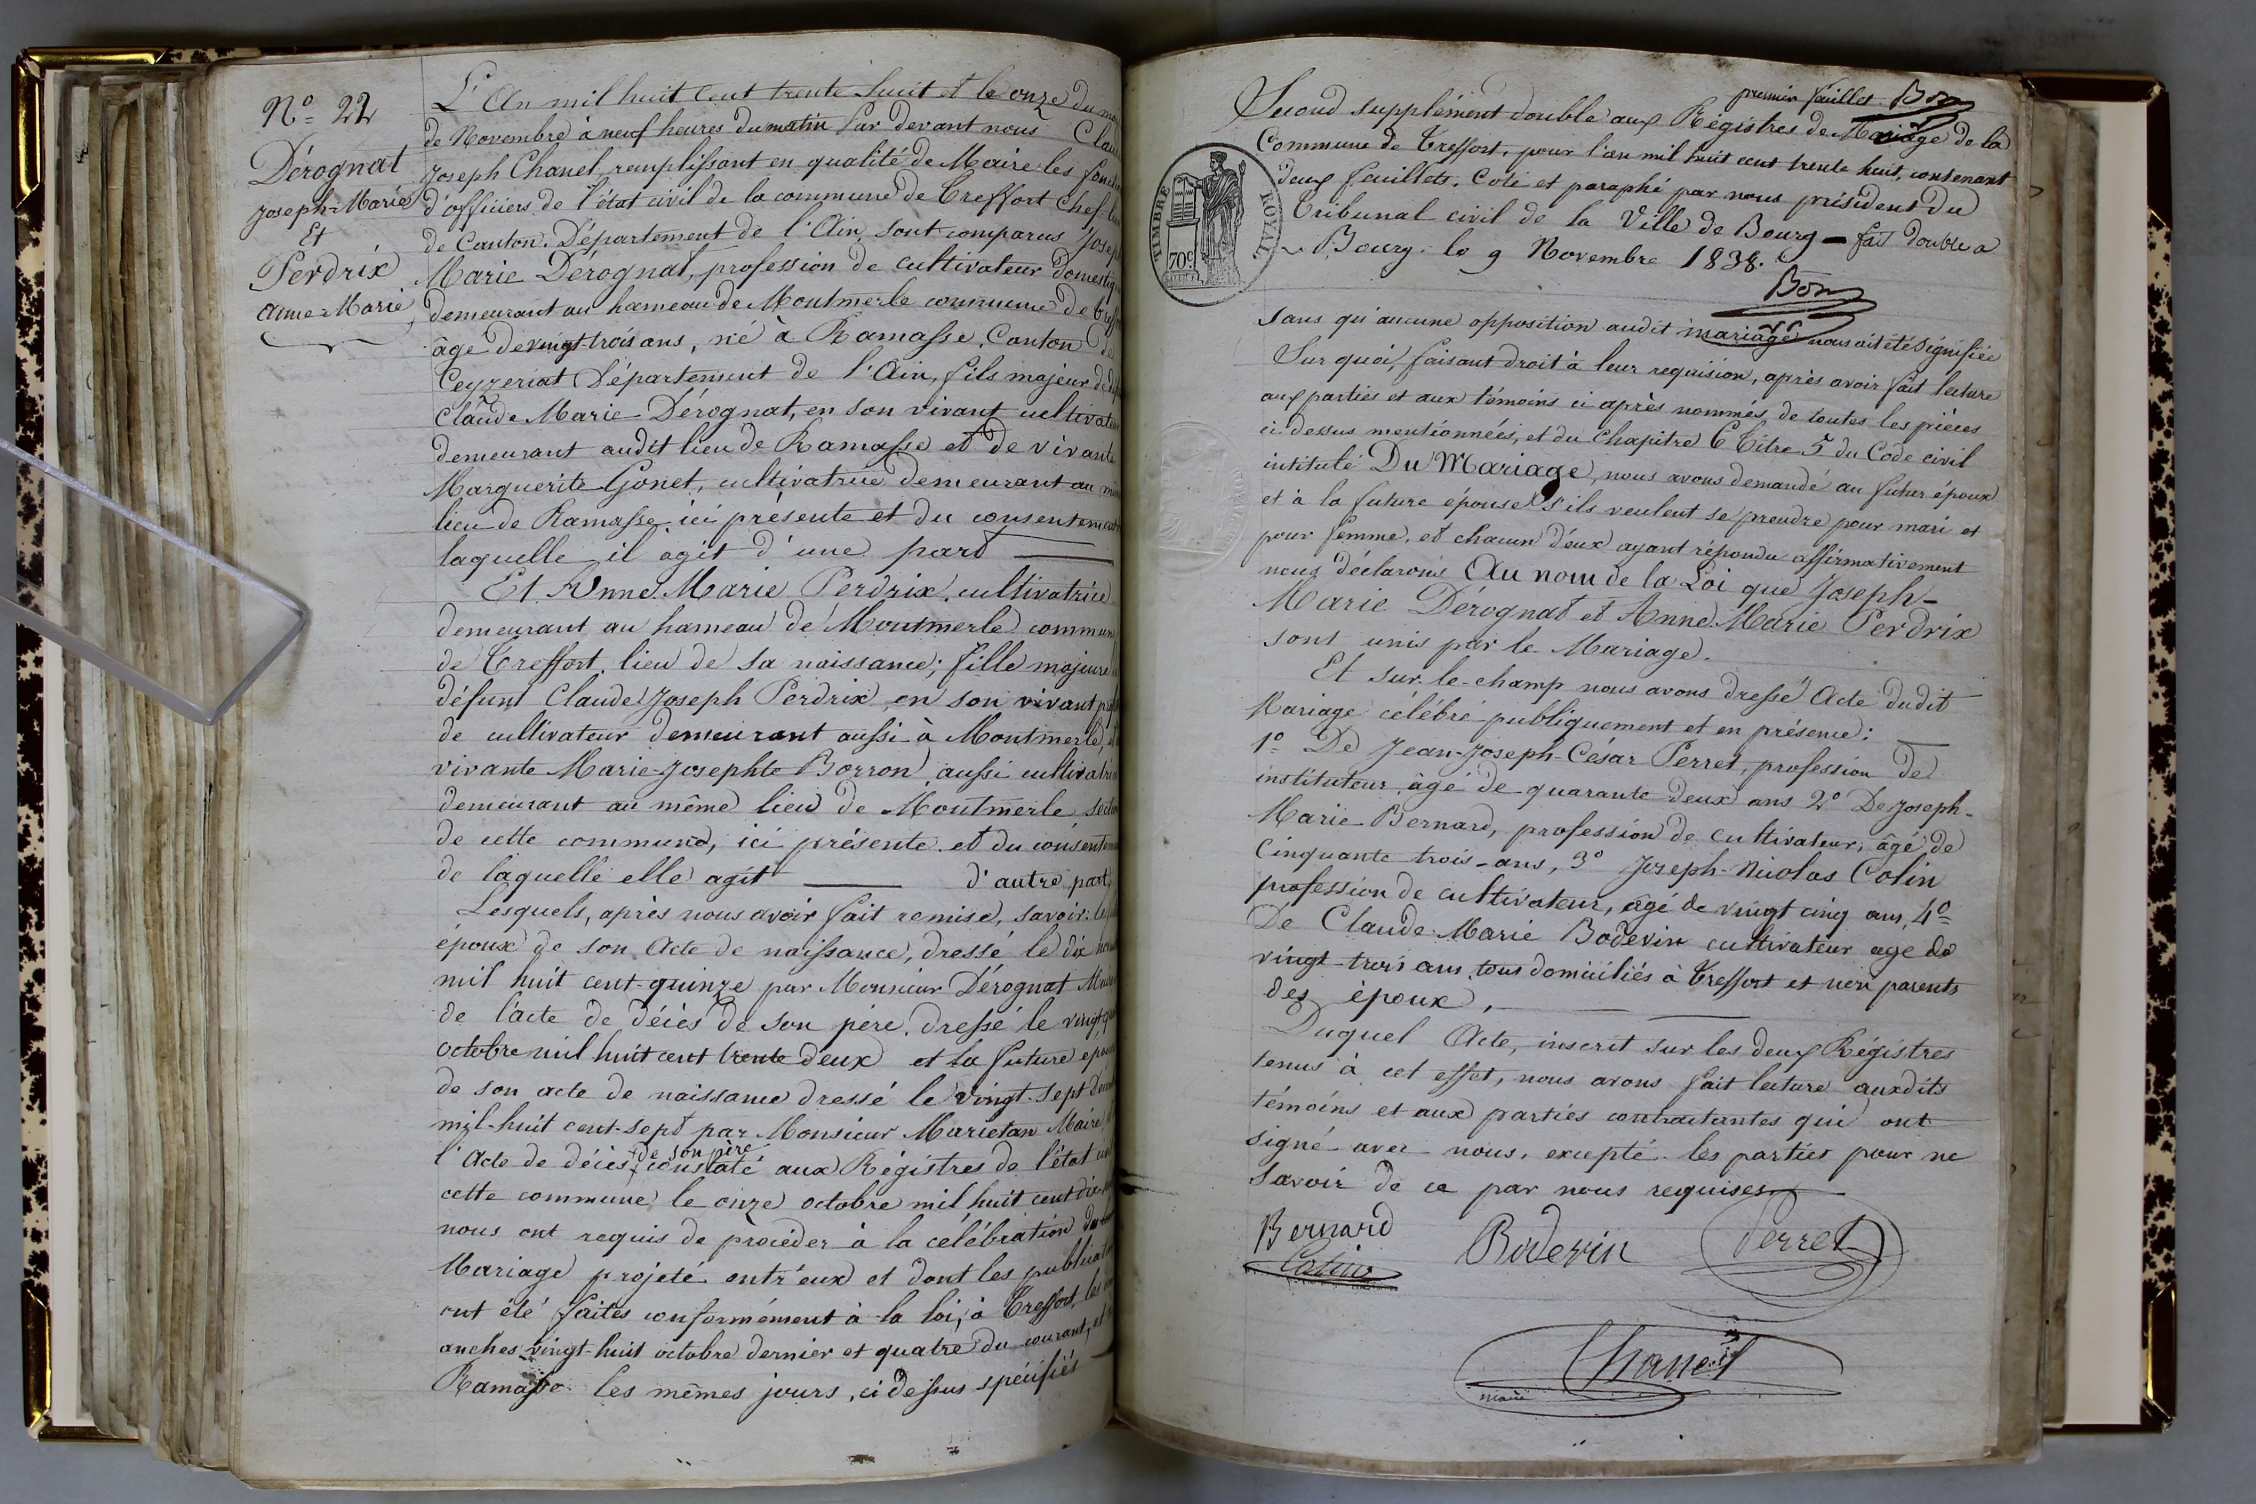 N.º 22
Dérognat
Joseph-Marie
Et
Perdrix
Anne-Marie
L'An mil huit cent trente huit et le onze du
de Novembre à neuf heures du matin Par devant nous
Joseph Chanel, remplissant en qualité de Maire les
d'officiers de l'état civil de la commune de Treffort Chef
de Canton, Département de l'Ain, sont comparus
Marie Dérognat, profession de cultivateur
demeurant au hameau de Montmerle commune de
âge de vingt trois ans, né à Ramasse, Canton de
Ceyzeriat Département de l'Ain, fils majeur de
Claude Marie Dérognat, en son vivant
demeurant audit lieu de Ramasse et de vivante
Marguerite Gonet, cultivatrice demeurant au
lieu de Ramasse ici présente et du consentement
laquelle il agit d'une part
Et Anne Marie Perdrix, cultivatrice
demeurant au hameau de Montmerle
de Treffort, lieu de sa naissance; fille majeure
défunt Claude Joseph Perdrix en son vivant
de cultivateur demeurant aussi à Montmerle,
vivante Marie-Josephte Borron aussi
demeurant au même lieu de Montmerle
de cette commune, ici présente et du
de laquelle elle agit d'autre part,
Lesquels, après nous avoir fait remise, savoir:
époux de son acte de naissance, dressé le dix
mil huit cent-quinze par Monsieur Dérognat
de l'acte de décès de son père, dressé le
octobre mil huit cent trente deux et la future
de son acte de naissance dressé le vingt-sept
mil-huit cent-sept par Monsieur Marietan Maire,
l'Acte de décès de son père constaté aux Régistres de l'état
cette commune le onze octobre mil huit cent
nous ont requis de procéder à la célébration
Mariage projeté entr'eux et dont les
ont été faites conformément à la loi, à Treffort,
anches vingt-huit octobre dernier et quatre du courant,
Ramasse les mêmes jours, ci dessus spécifiés
premier feuillet. Bon
Second supplément double aux Régistres de Mariage de la
Commune de Treffort, pour l'an mil huit cent trente huit, contenant
deux feuillets. Coté et paraphé par nous président du
Tribunal civil de la Ville de Bourg — fait double a
Bourg. le 9 Novembre 1838.
Bon
TIMBRE ROYAL
70c
sans qu'aucune opposition audit mariage nous ait été signifiée
Sur quoi, faisant droit à leur requision, après avoir fait lecture
aux parties et aux témoins ci après nommés, de toutes les pièces
ci dessus mentionnées, et du Chapitre 6 Titre 5 du Code civil
intitulé Du Mariage, nous avons demandé au futur époux
et à la future épouse s'ils veulent se prendre pour mari et
pour femme, et chacun d'eux ayant répondu affirmativement
nous déclarons Au nom de la Loi que Joseph-
Marie Dérognat et Anne Marie Perdrix
sont unis par le Mariage.
Et sur-le-champ nous avons dressé Acte dudit
Mariage célébré publiquement et en présence:
1º De Jean-Joseph-César Perret, profession de
instituteur, âgé de quarante deux ans 2º De Joseph-
Marie-Bernard, profession de cultivateur, âgé de
Cinquante trois-ans, 3º Joseph-Nicolas Colin
profession de cultivateur, agé de vingt cinq ans, 4º
De Claude Marie Bodevin cultivateur age de
vingt-trois ans tous domiciliés à Treffort et non parents
des époux,
Duquel Acte, inscrit sur les deux Régistres
tenus à cet effet, nous avons fait lecture auxdits
témoins et aux parties contractantes qui ont
signé avec nous, excepté les parties pour ne
Savoir de ce par nous requises.
Bernard Bodevin Perret
Colin
Chanel
maire